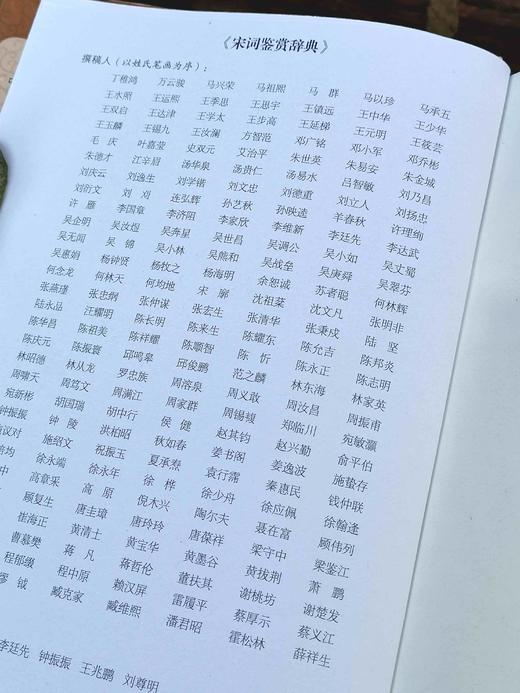 《宋词鉴赏辞典》
撰稿人（以姓氏笔画为序）：
丁稚鸿 万云骏 马兴荣 马祖熙 马 群 马以珍 马承五
王水照 王运熙 王季思 王思宇 王镇远 王中华 王少华
王双启 王达津 王学太 王步高 王延梯 王元明 王筱芸
王玉麟 王锡九 王汝澜 方智范 邓广铭 邓小军 邓乔彬
毛 庆 叶嘉莹 史双元 艾治平 朱世英 朱易安 朱金城
朱德才 江辛眉 汤华泉 汤贵仁 汤易水 吕智敏 刘乃昌
刘庆云 刘逸生 刘学锴 刘文忠 刘德重 刘立人 刘扬忠
刘衍文 刘 刈 连弘辉 孙艺秋 孙映逵 羊春秋 许理绚
许 雁 李国章 李济阻 李家欣 李维新 李廷先 李达武
吴企明 吴汝煜 吴奔星 吴世昌 吴调公 吴小如 吴丈蜀
吴无闻 吴 锦 吴小林 吴熊和 吴战垒 吴庚舜 吴翠芬
吴惠娟 杨钟贤 杨牧之 杨海明 余恕诚 苏者聪 何林辉
何念龙 何林天 何均地 宋 廓 沈祖棻 沈文凡 张明非
张燕瑾 张忠纲 张仲谋 张宏生 张清华 张秉戍 陆 坚
陆永品 汪耀明 陈长明 陈来生 陈耀东 陈允吉 陈邦炎
陈华昌 陈祖美 陈祥耀 陈顺智 陈 忻 陈永正 陈志明
陈庆元 陈振寰 邱鸣皋 邱俊鹏 范之麟 林东海 林家英
林昭德 林从龙 罗忠族 周溶泉 周义敢 周汝昌 周振甫
周啸天 周笃文 周满江 周家群 周锡 郑临川 宛敏灏
宛新彬 胡国瑞 胡中行 侯 健 赵其钧 赵兴勤 俞平伯
钟振振 钟 陵 洪柏昭 秋如春 姜书阁 姜逸波 施蛰存
施议对 施绍文 祝振玉 夏承焘 袁行霈 秦惠民 钱仲联
均 徐永端 徐永年 徐 桦 徐少舟 徐应佩 徐翰逢
中 高章采 高 原 倪木兴 陶尔夫 聂在富 顾伟列
顾复生 唐圭璋 唐玲玲 唐葆祥 梁守中 梁鉴江
崔海正 黄清士 黄宝华 黄墨谷 黄拔荆 萧 鹏
曹慕樊 蒋 凡 蒋哲伦 董扶其 谢桃坊 谢楚发
程郁缀 程中原 赖汉屏 雷履平 蔡厚示 蔡义江
缪 钺 臧克家 臧维熙 潘君昭 霍松林 薛祥生
李廷先 钟振振 王兆鹏 刘尊明